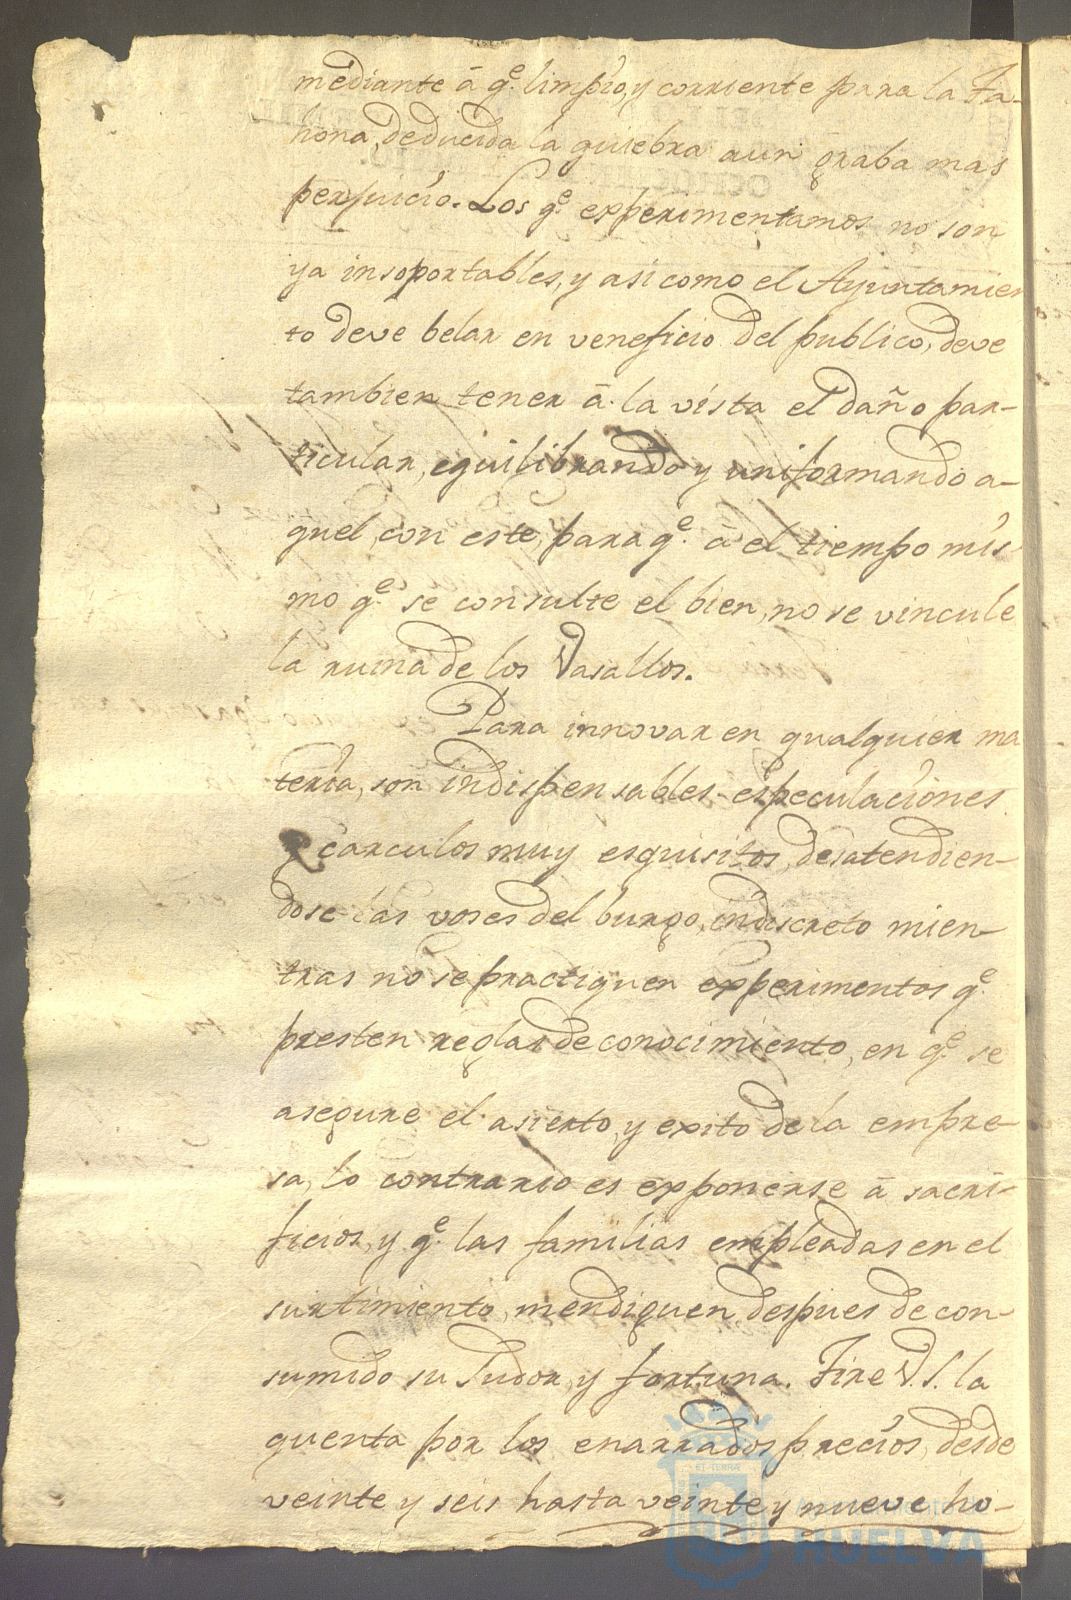 mediante â q.e limpio, y corriente para la Ta-
hona, deducida la quiebra aun graba mas
perjuicio. Los q.e experimentamos no son
ya insoportables, y asi como el Ayuntamien
to deve belar en veneficio del publico, deve
tambien tener â la vista el daño par-
ticular, equilibrando y uniformando a-
quel con este, para q.e â el tiempo mis-
mo q.e se consulte el bien, no se vincule
la ruina de los Vasallos.
Para innovar en qualquier ma
teria, son indispensables especulaciones
y carculos muy esquisitos, desatendien-
dose las voses del burgo, indiscreto mien-
tras no se practiquen experimentos q.e
presten reglas de conocimiento, en q.e se
asegure el asierto, y exito de la empre-
sa, lo contrario es exponerse â sacri-
ficios, y q.e las familias empleadas en el
surtimiento, mendiguen despues de con-
sumido su sudor, y fortuna. Tire V.S. la
quenta por los enarrados precios, desde
veinte y seis hasta veinte y nueve ho-
HUELVA